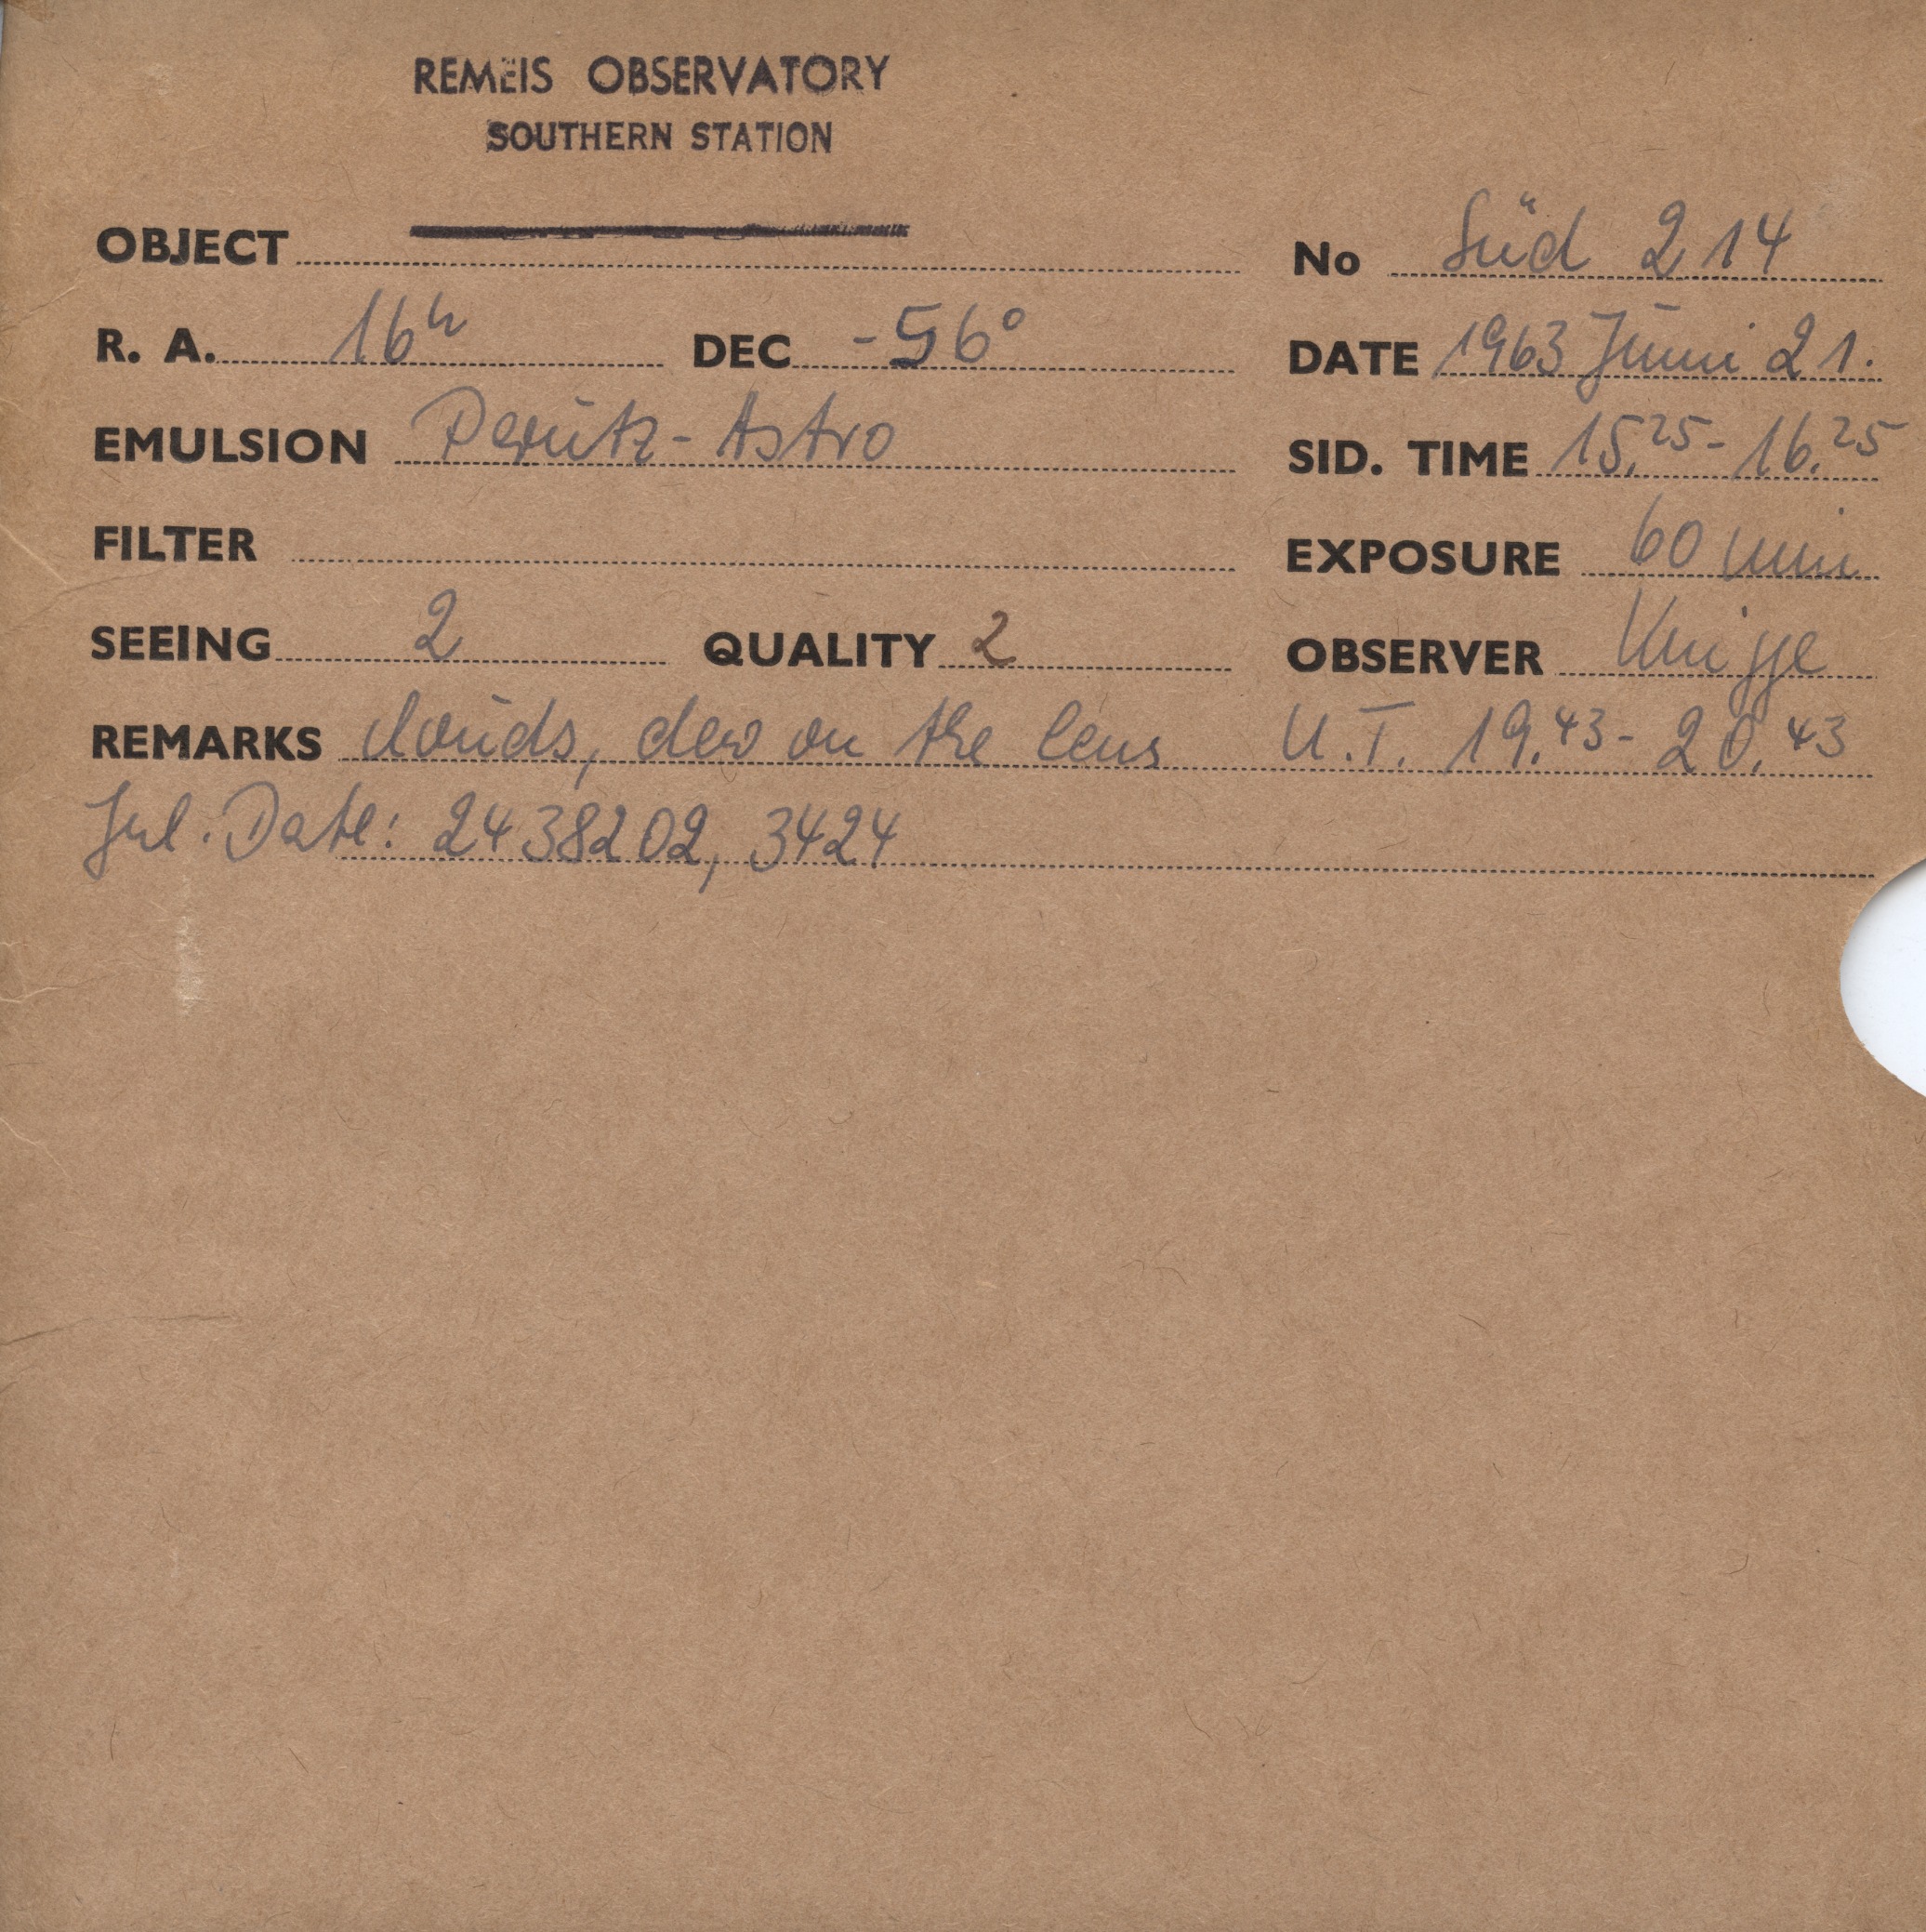 REMEIS OBSERVATORY
SOUTHERN STATION
OBJECT No Süd 214
R. A. 16h DEC -56° DATE 1963 Juni 21.
EMULSION Perutz-Astro SID. TIME 15.25-16.25
FILTER EXPOSURE 60 min
SEEING 2 QUALITY 2 OBSERVER Knigge
REMARKS clouds, dew on the lens U.T. 19.43-20.43
Jul. Date: 2438202,3424